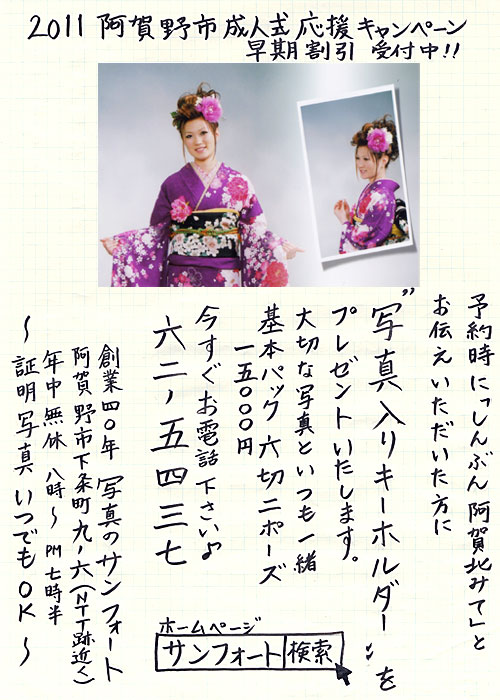 2011 阿賀野市成人式応援キャンペーン
早期割引 受付中!!
予約時に「しんぶん阿賀北みて」と
お伝えいただいた方に
"写真入りキーホルダー"を
プレゼントいたします。
大切な写真といつも一緒
基本パック六切二ポーズ
一五〇〇〇円
今すぐお電話下さい♪
六二ノ五四三七
創業四〇年 写真のサンフォート
阿賀野市下条町九ノ六(NTT跡近く)
年中無休 八時〜PM七時半
〜証明写真いつでもOK〜
ホームページ
サンフォート 検索